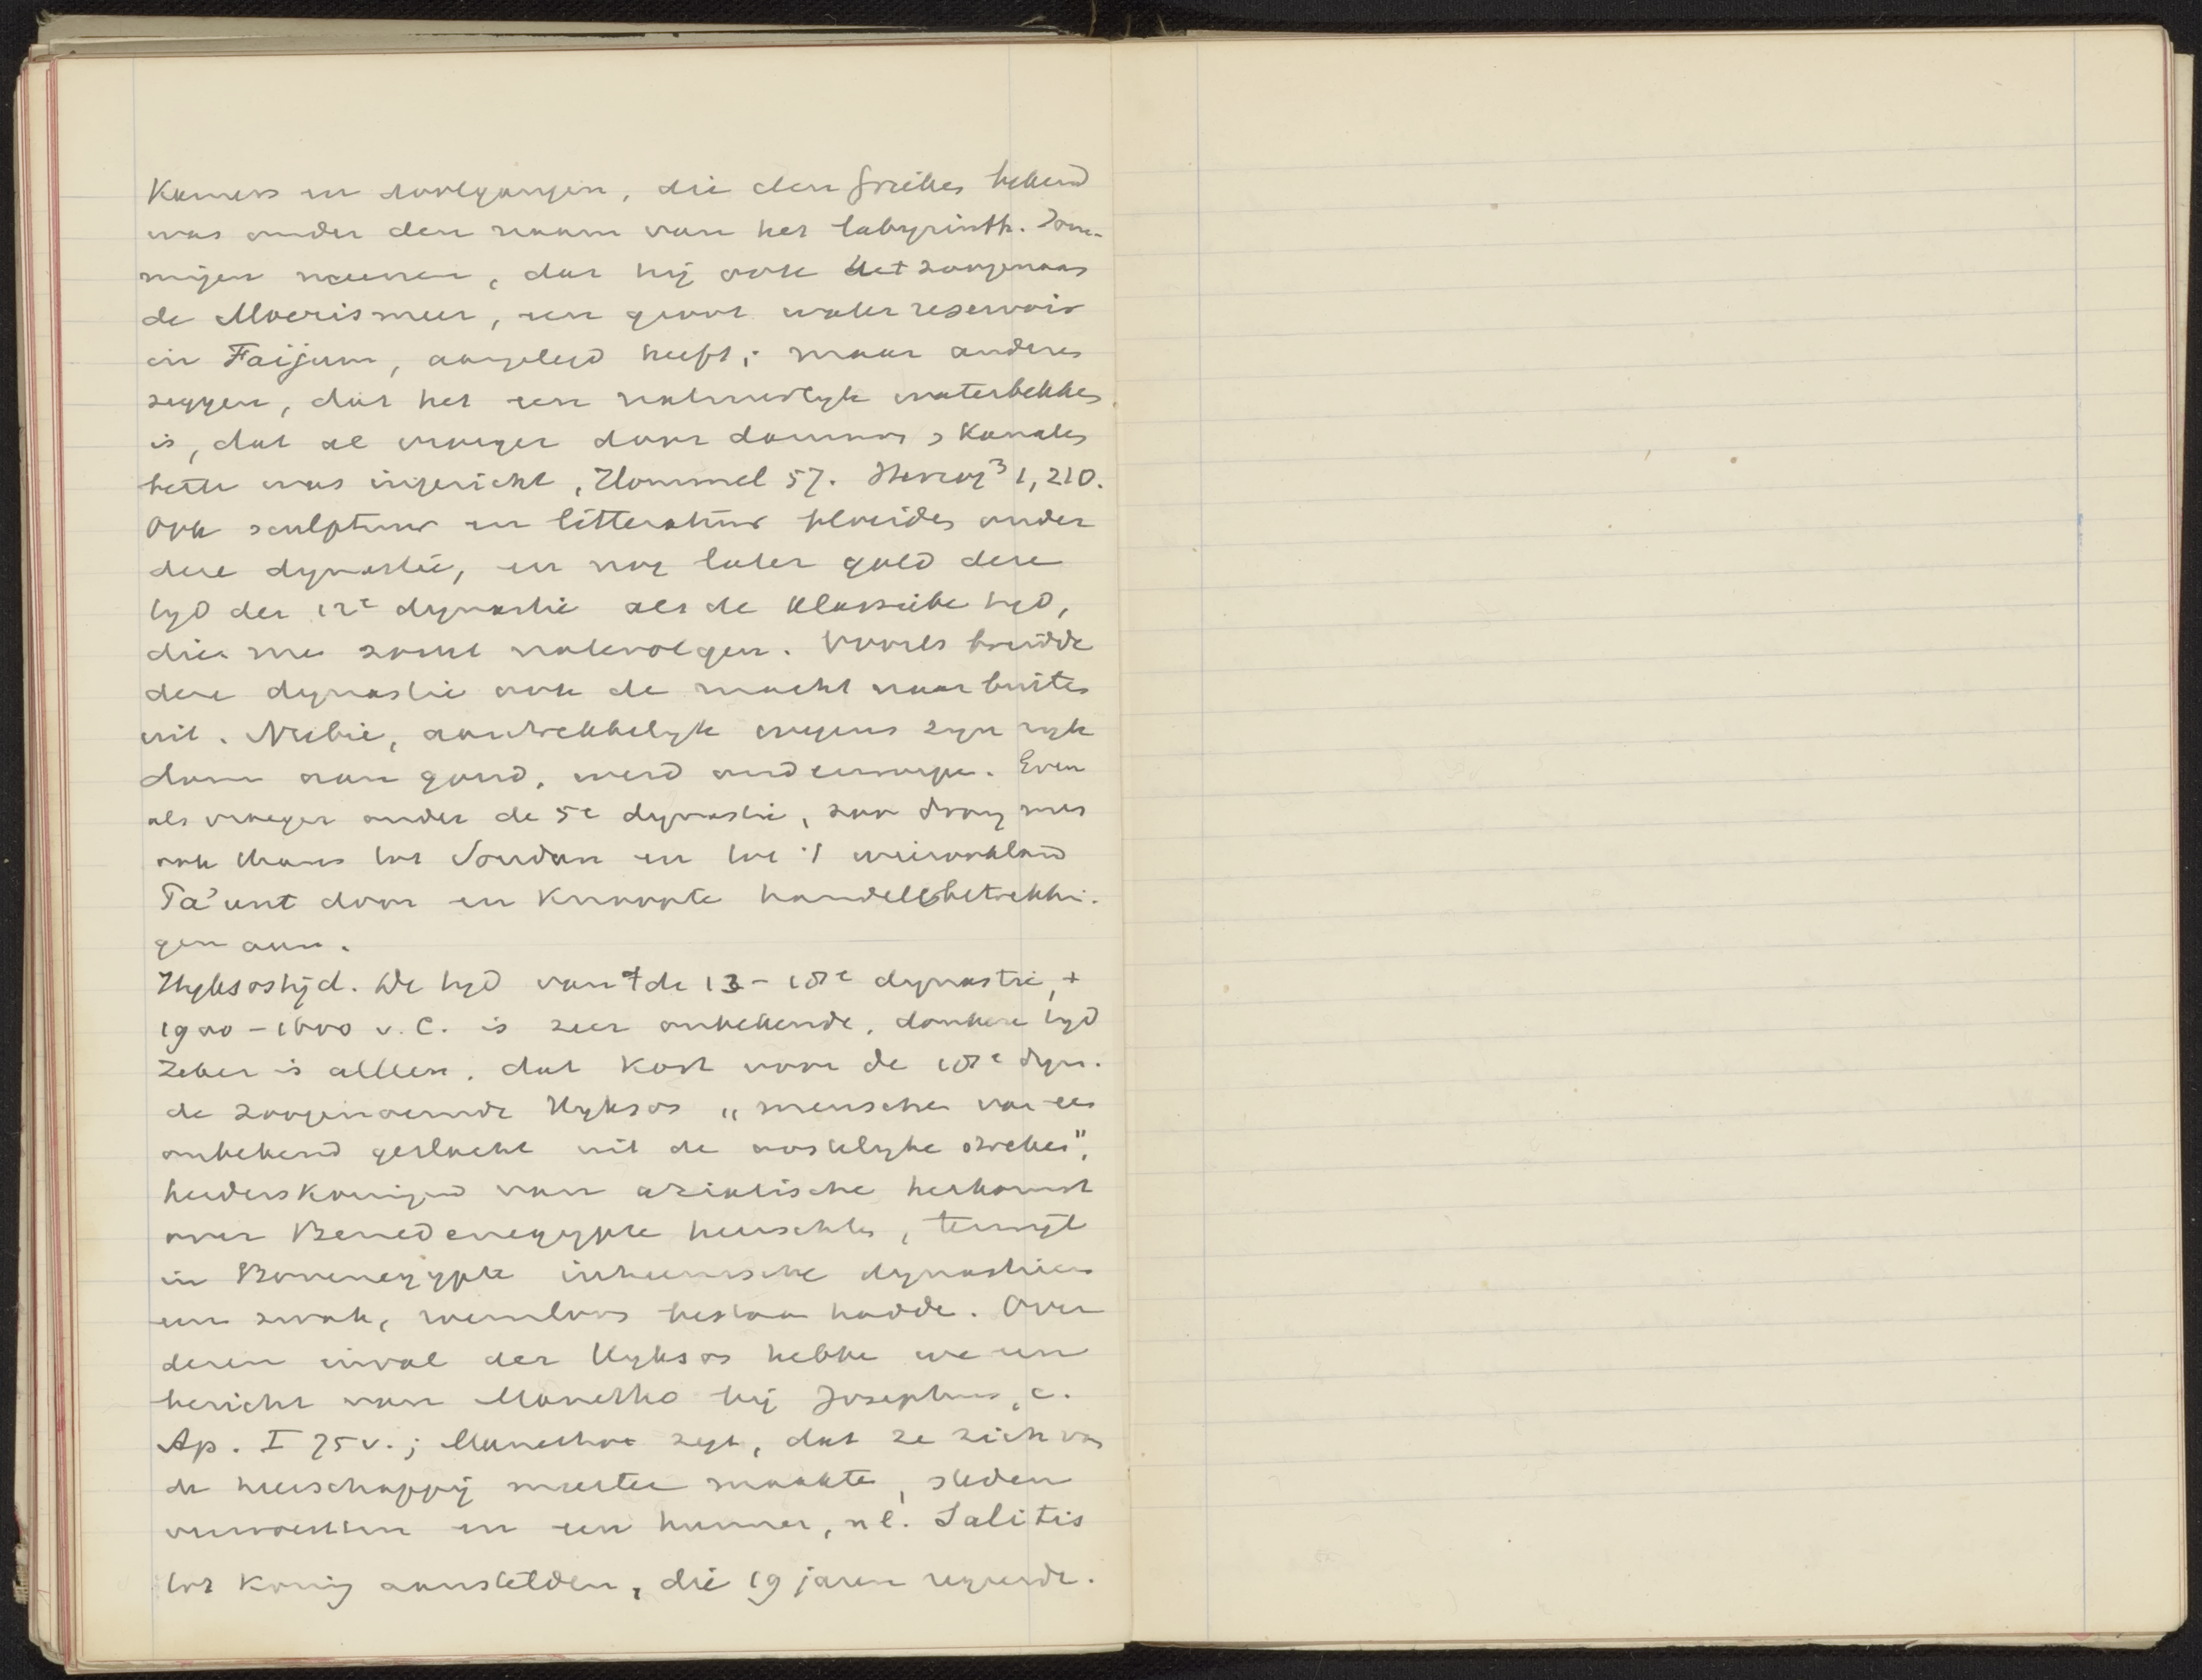 Kamers en doolgangen, die den Grieken bekend
was onder den naam van het labyrinth. Som-
migen meenen, dat hij ook het zoogenaam
de Moerismeer, een groot waterreservoir
in Faijum, aangelegd heeft; maar anderen
zeggen, dat het een natuurlyk waterbekken
is, dat al vroeger door dammen & kanalen
beter was ingericht, Hommel 57. Herzog³ 1, 210.
Ook sculptuur en litteratuur bloeiden onder
deze dynastie, en nog later gold deze
tyd der 12e dynastie als de klassieke tyd,
dien me zocht natevolgen. Voorts breidde
deze dynastie ook de macht naar buiten
uit. Nubie, aantrekkelyk wegens zyn ryk
dom aan goud, werd onderworpen. Even
als vroeger onder de 5e dynastie, zoo drong men
ook thans tot Soudan en tot 't wierookland
Ta'unt door en knoopte handelsbetrekkin-
gen aan.
Hyksostijd. De tyd van de 13 - 18e dynastie, +
1900 - 1600 v. C. is zeer onbekende, donkere tyd
Zeker is alleen, dat kort voor de 18e dyn.
de zoogenaemde Hyksos „menschen van een
onbekend geslacht uit de oostelyke streken",
herderskoningen van aziatische herkomst
over Benedenegypte heerschten, terwijl
in Bovenegypte inheemsche dynastieen
een zwak, roemloos bestaan hadden. Over
dezen inval der Hyksos hebben we een
bericht van Manetho bij Josephus, c.
Ap. I 75 v.; Manetho zegt, dat ze zich van
de heerschappij meester maakten, steden
verwoestten en een hunner, nl. Salitis
tot koning aanstelden, die 19 jaren regeerde.